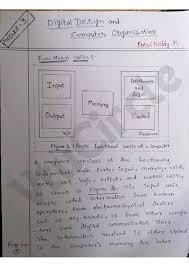 Module-3
Digital Design and
Computer Organization
Functional Units:-
Input
Output
I/O
Memory
Arithmetic
and
logic
Control
Processor
Figure Basic functional units of a computer
A computer consists of five functionally
independent main units: input, memory,
arithmetic and logic, output, and control units,
as shown in Figure The input unit
accepts coded information from human
operators, from electromechanical devices
such as key boards, or from other computers
over digital communication lines.
The information received is either stored
in the computer's memory for later
Page no